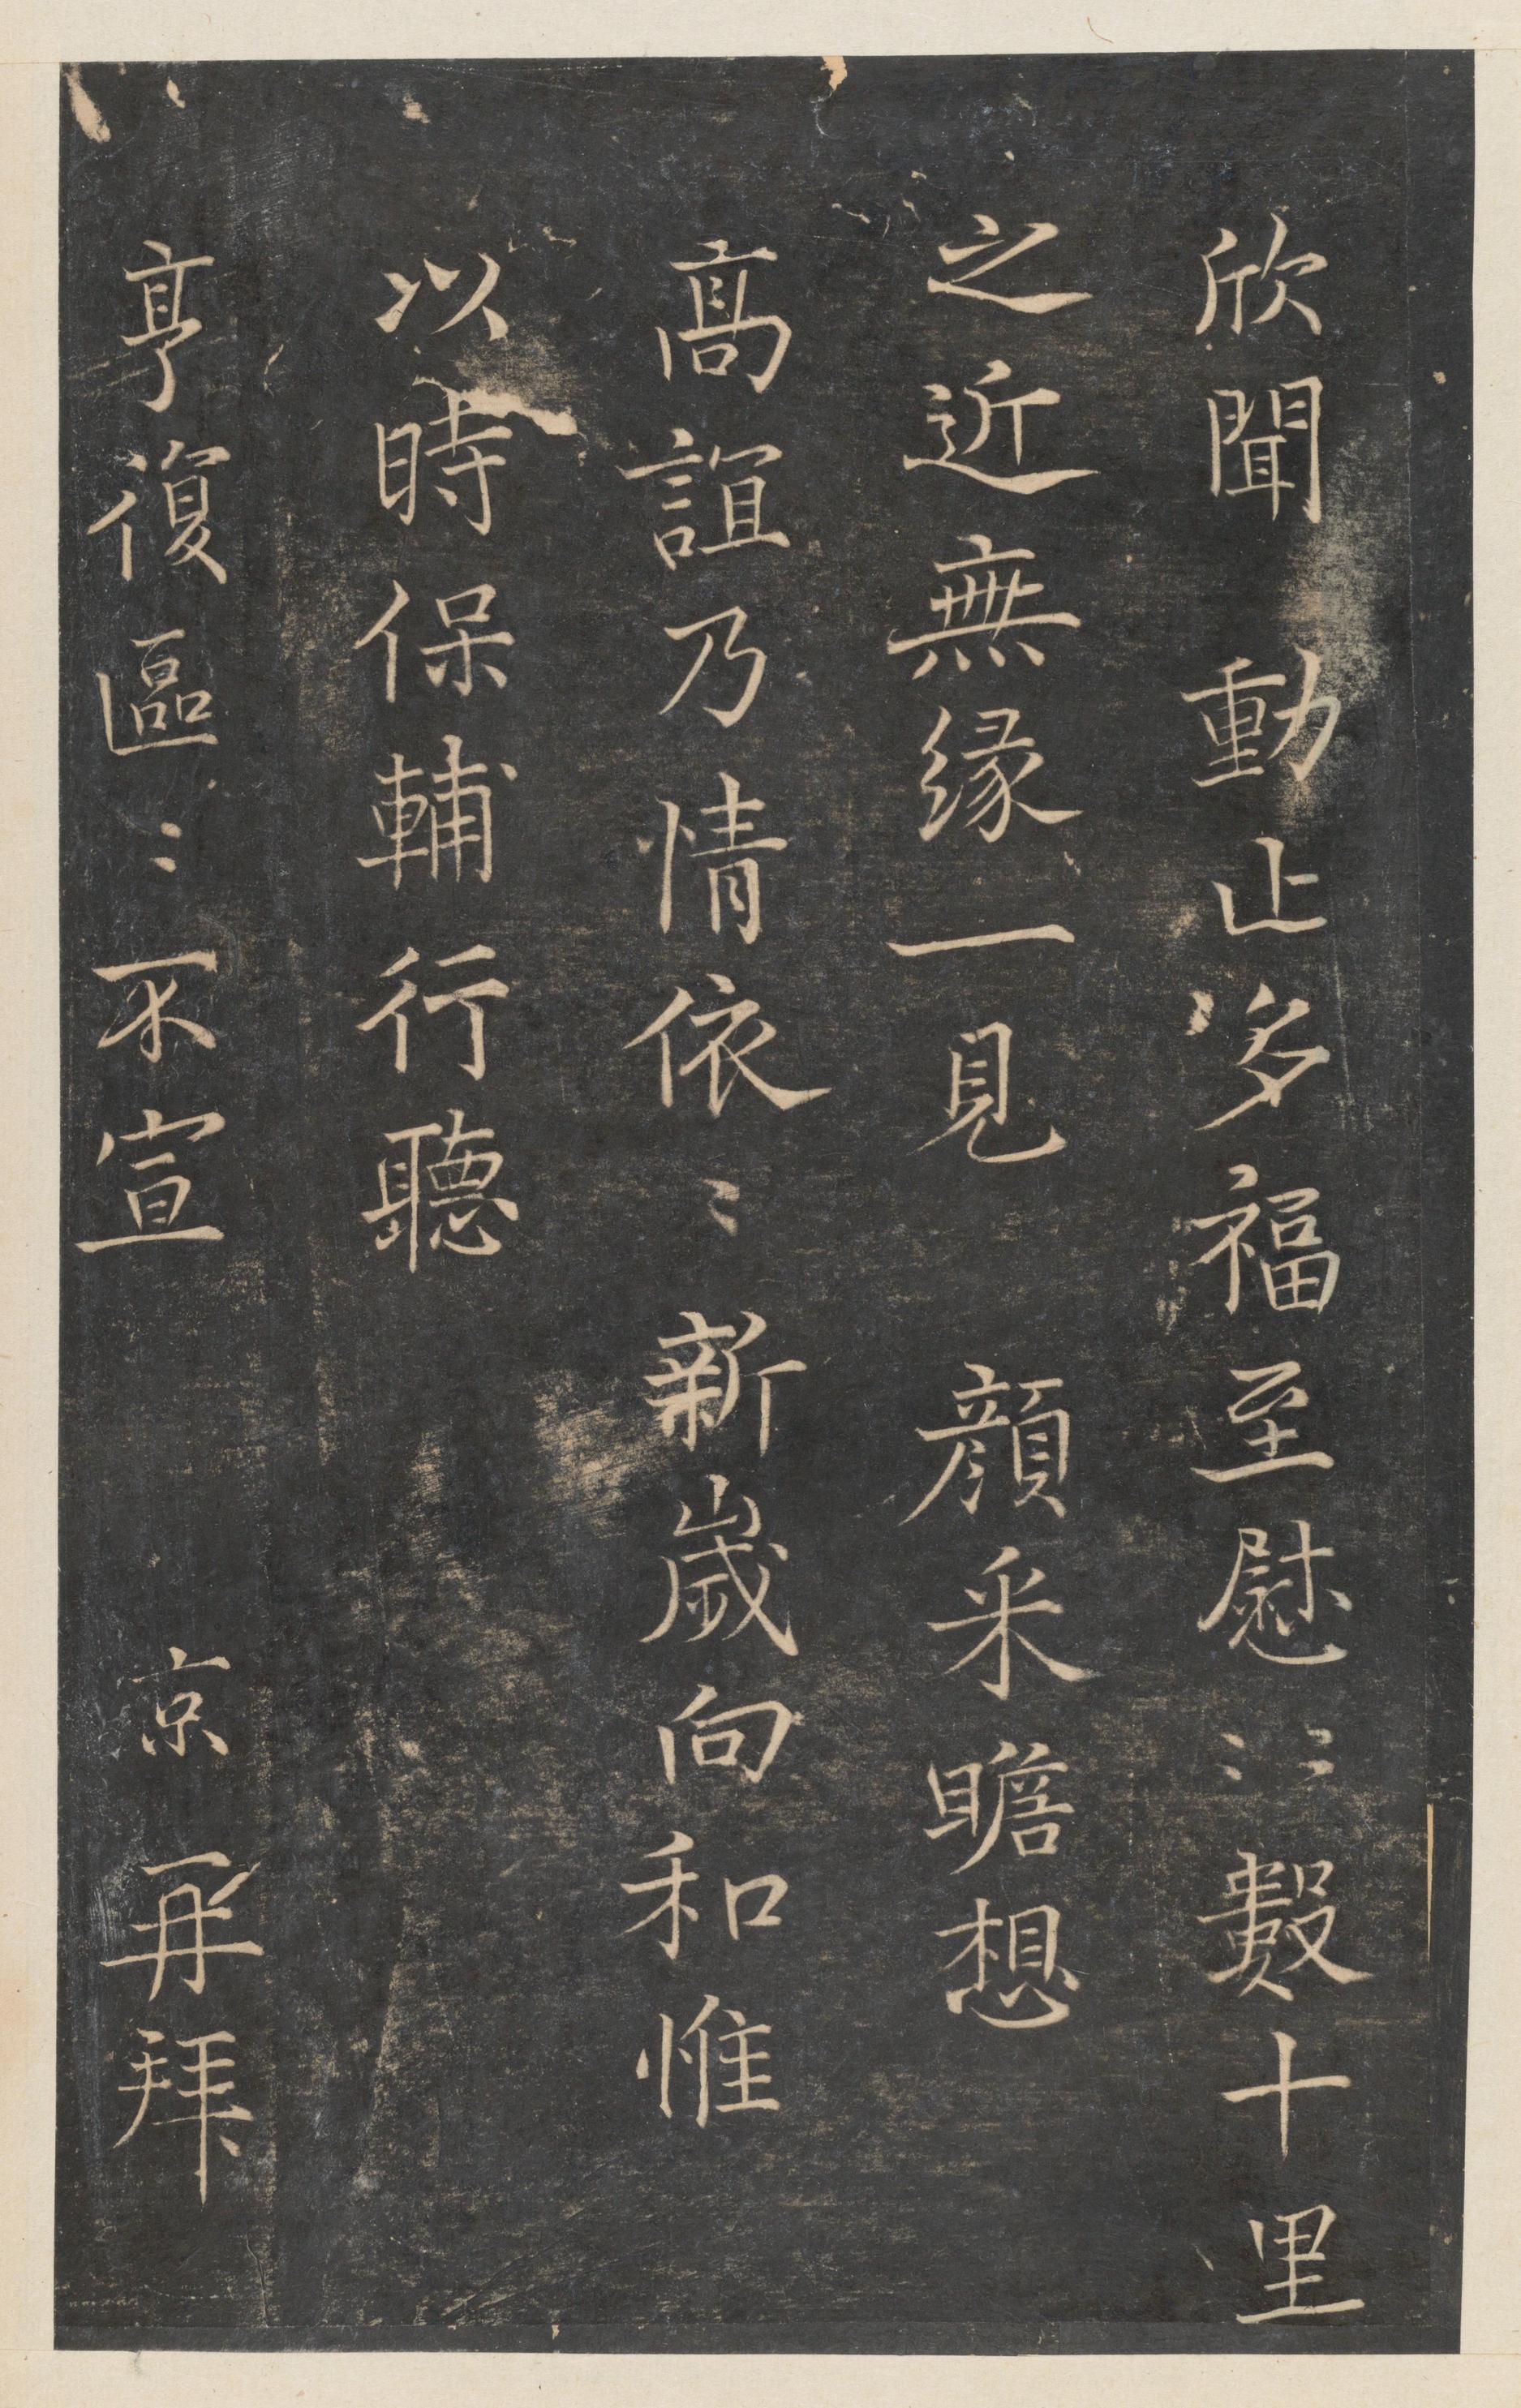 欣聞動止多福至慰〻〻數十里
之近無緣一見顔采瞻想
高誼乃情依〻新歲向和惟
以時保輔行聽
亨復區〻不宣京再拜